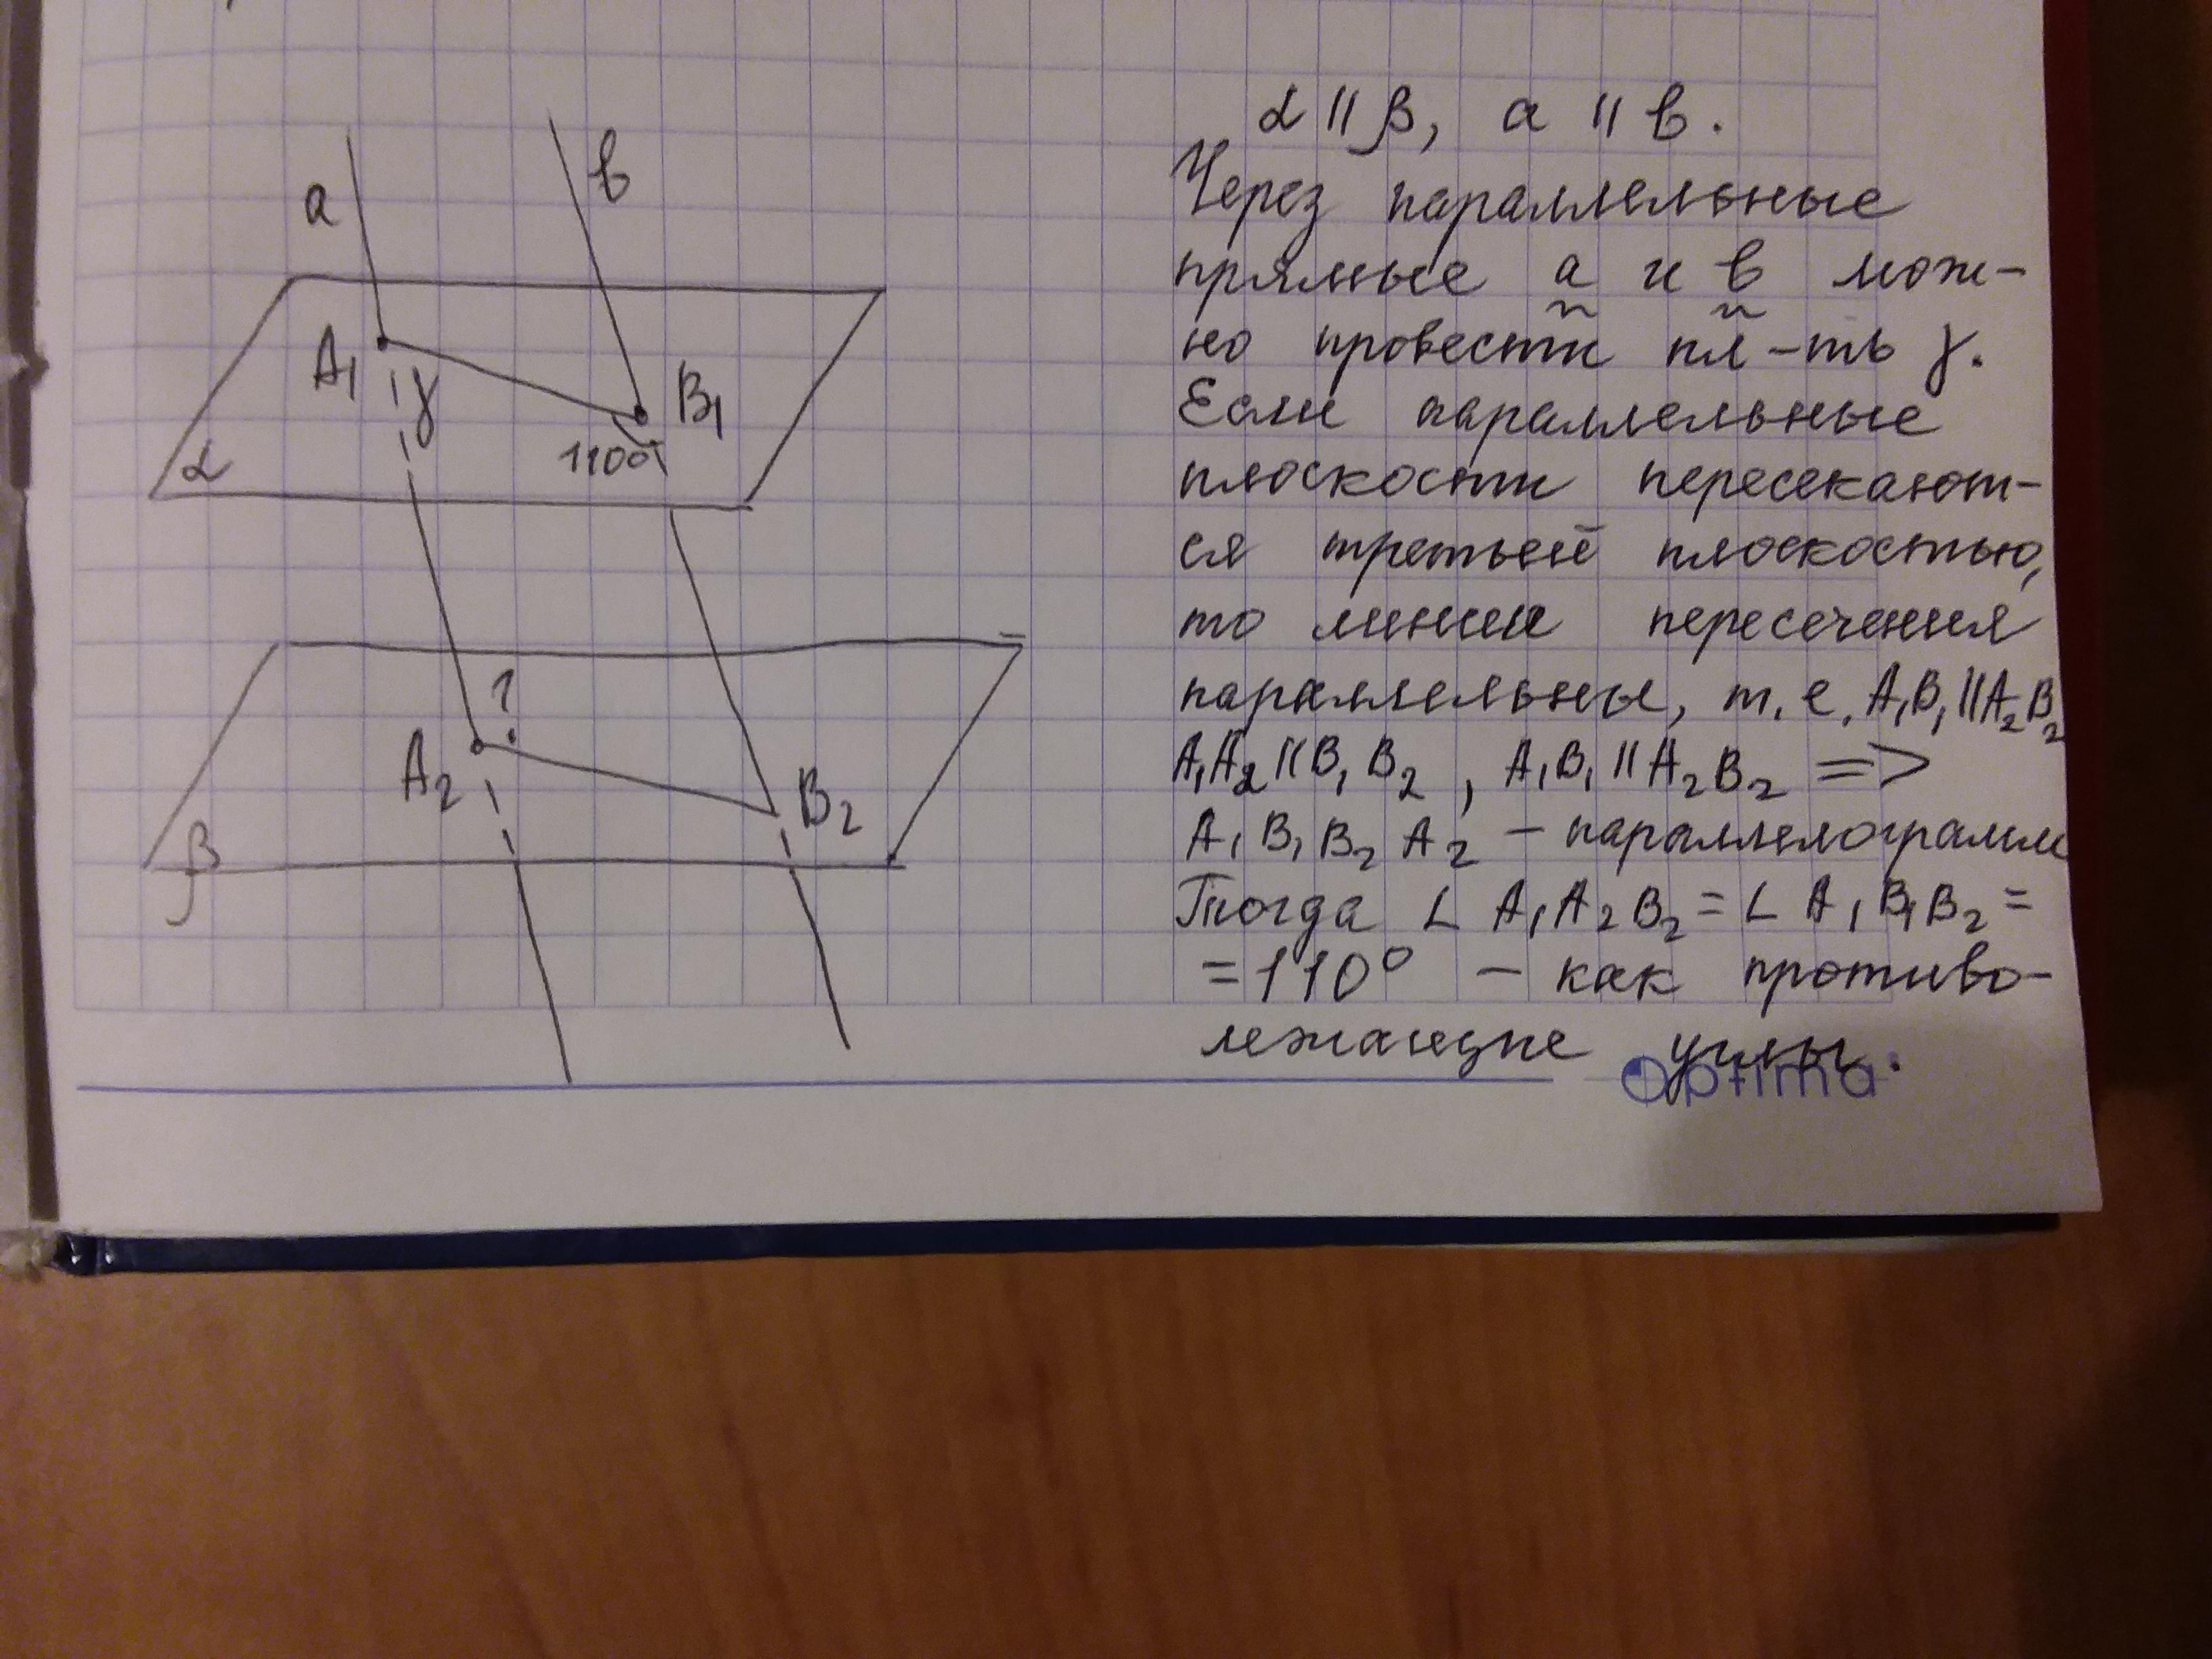 a
в
A₁
γ
B₁
110°
α
?
A₂
B₂
β
α || β, a || в.
Через параллельные
прямые a и в мож-
но провести пл-ть γ.
Если параллельные
плоскости пересекают-
ся третьей плоскостью,
то линии пересечения
параллельны, т.е. A₁B₁ || A₂B₂
A₁A₂ || B₁B₂, A₁B₁ || A₂B₂ =>
A₁B₁B₂A₂ – параллелограмм
Тогда ∠ A₁A₂B₂ = ∠ A₁B₁B₂ =
= 110° – как противо-
лежащие углы.
Optima